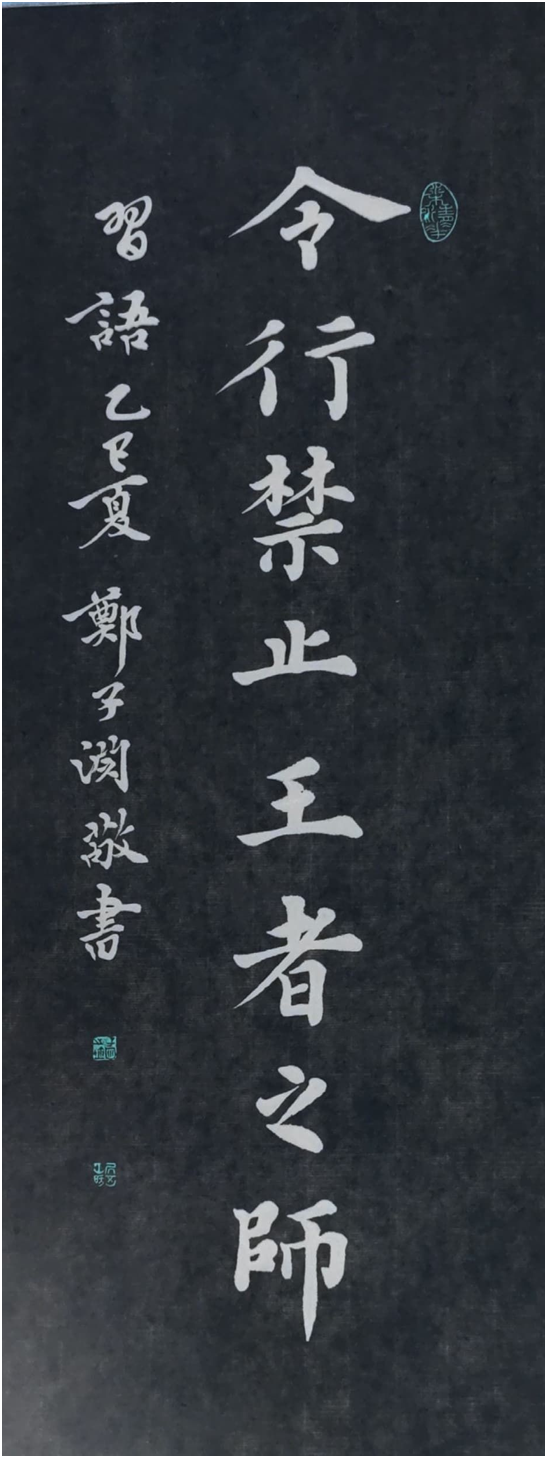 令行禁止王者之師
習語乙巳夏鄭子渕敬書